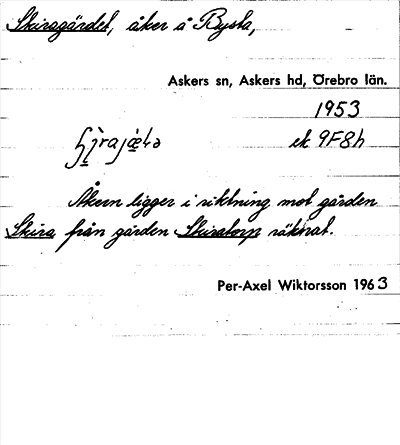 Skiragärdet, åker å Bysta,
Askers sn, Askers hd, Örebro län.
1953
ek 9F8h
Åkern ligger i riktning mot gården
Skira från gården Skiratorp räknat.
Per-Axel Wiktorsson 1963